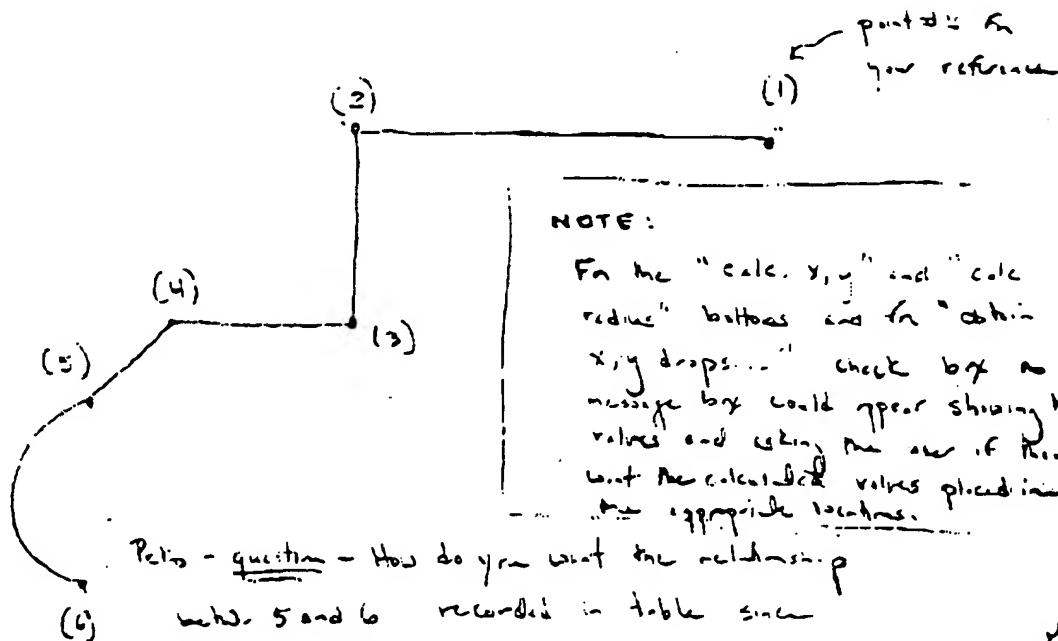 point #'s for
your reference
(1)
(2)
NOTE:
For the "calc. x, y" and "calc
radius" buttons and for "obtain
(4)
(3)
x, y drops..." check box a
(5)
message box could appear showing
values and asking the user if
want the calculated values placed in
the appropriate locations.
- question - How do you want the relationship
5 and 6 recorded in table since
(6)